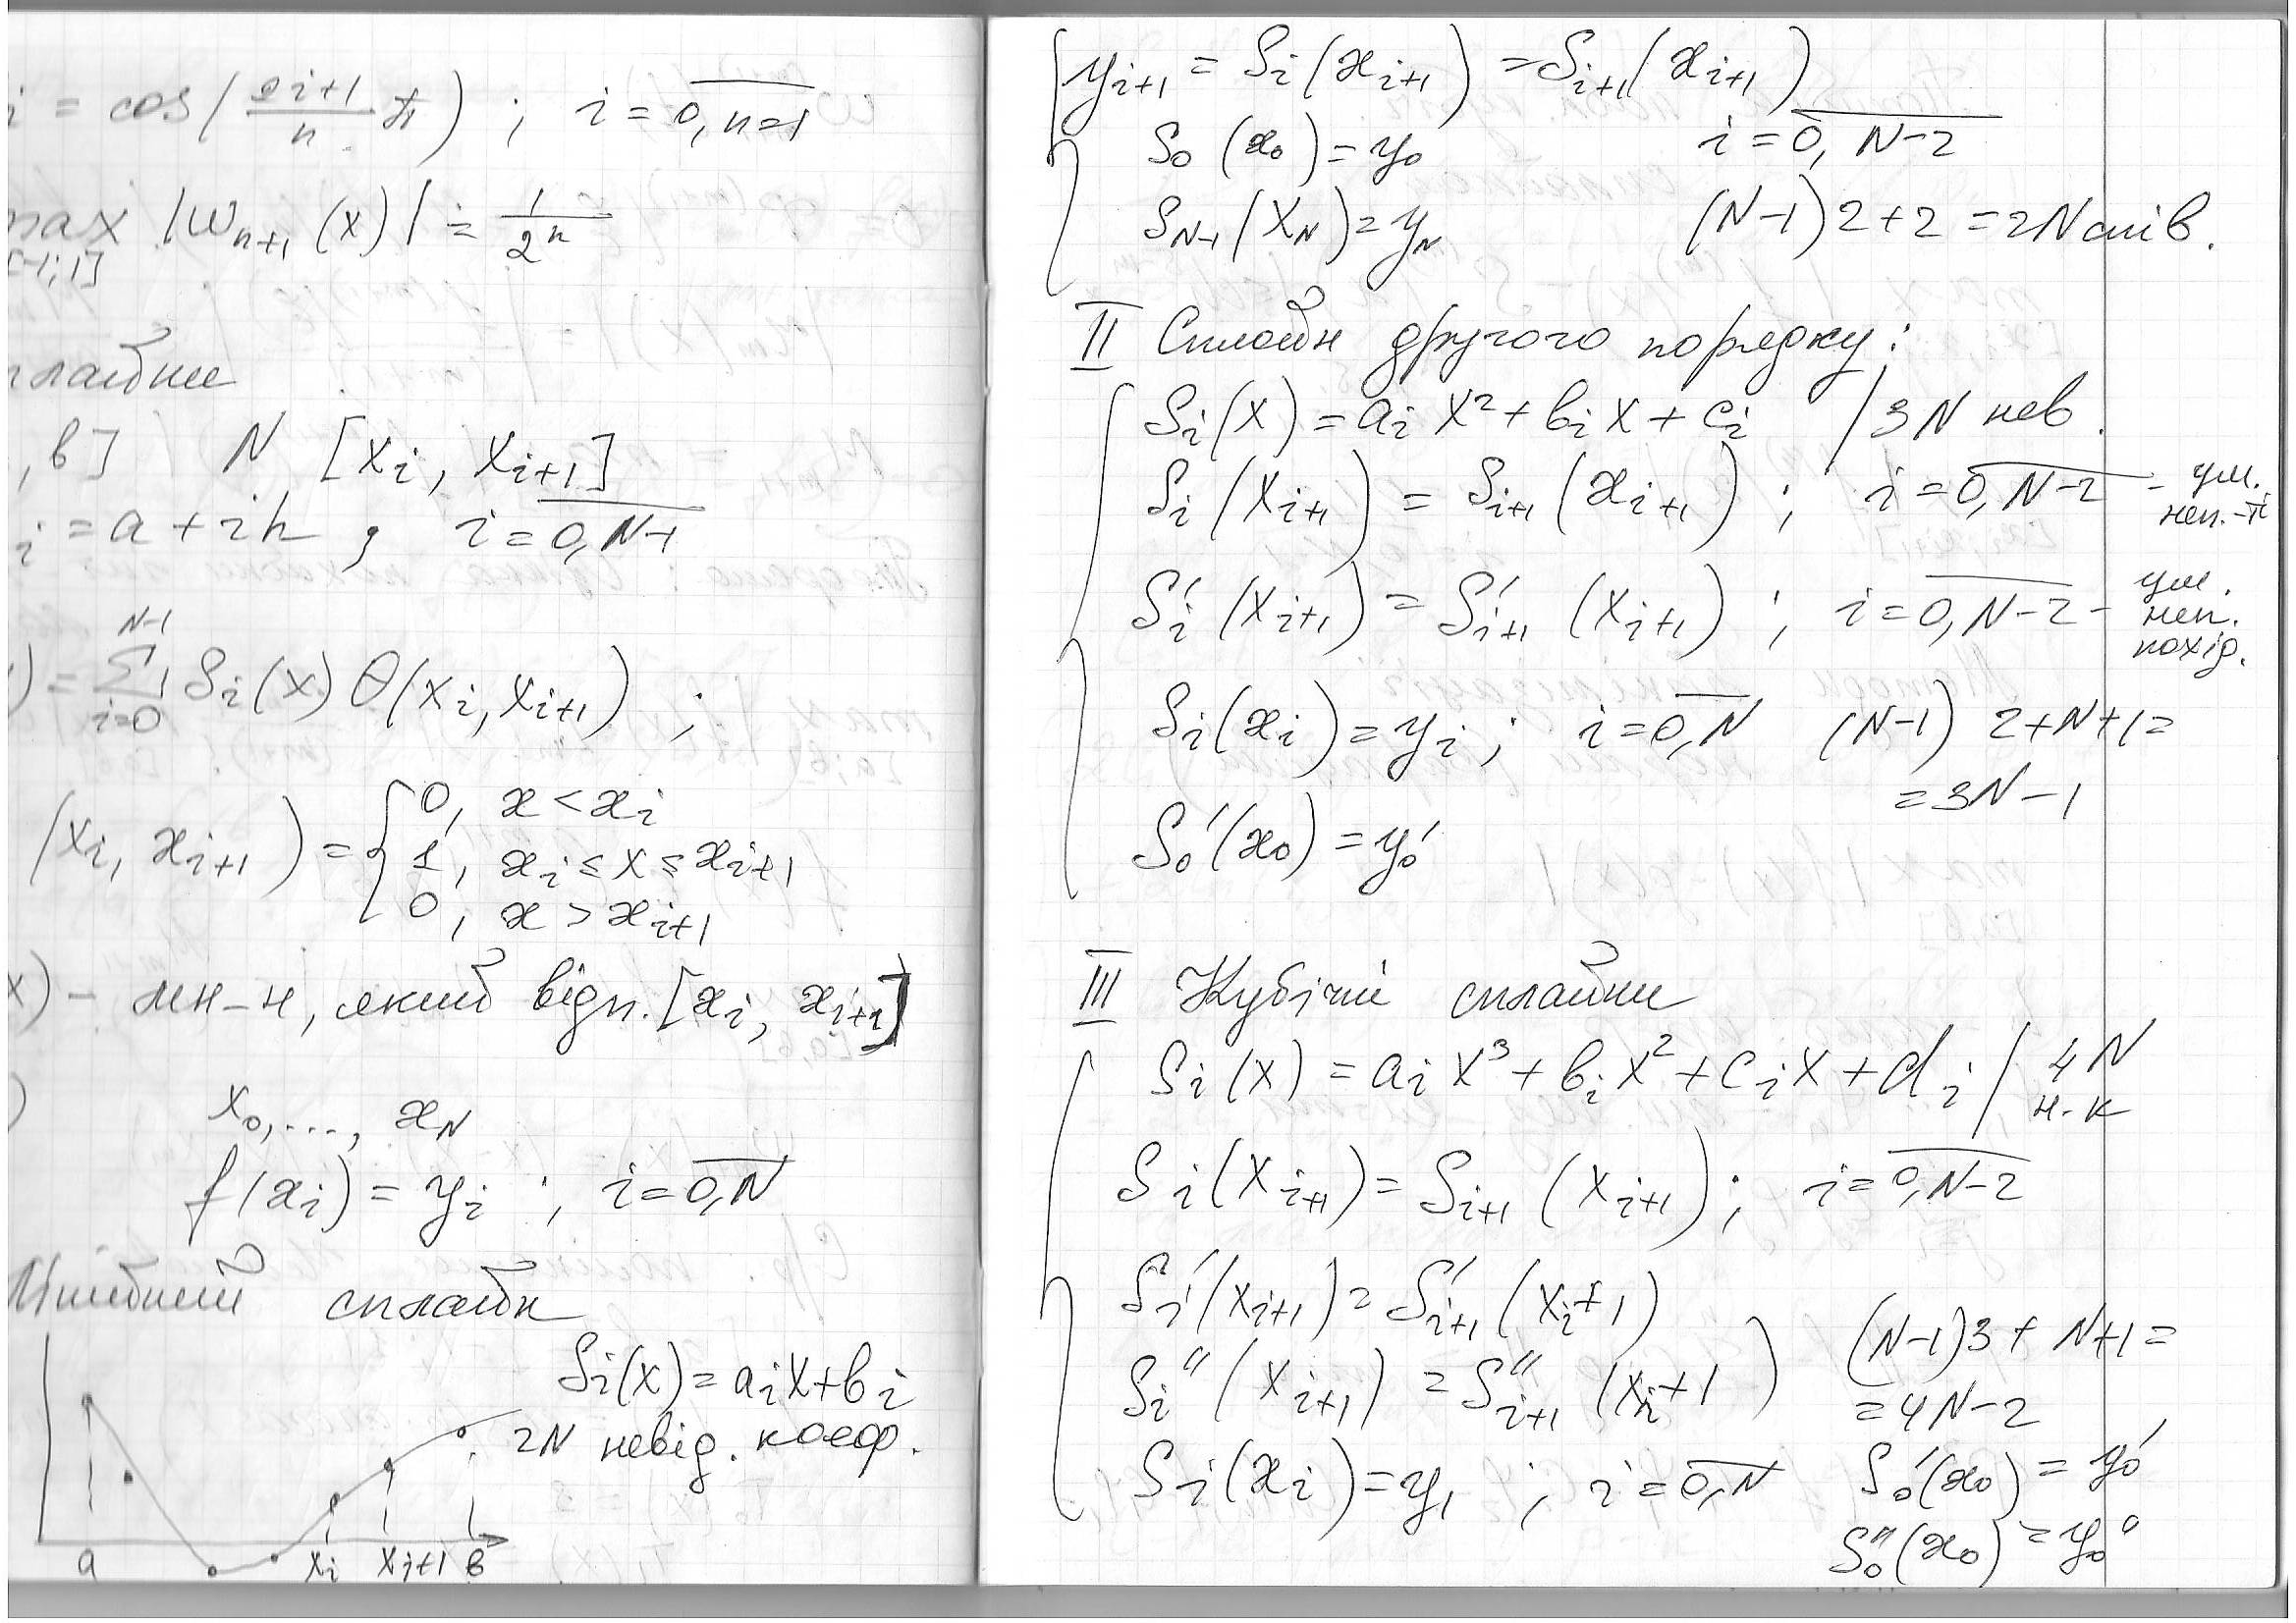 i = cos(2i+1/n π) ; i = 0,n-1
max |ωn+1(x)| = 1/2ⁿ
[-1;1]
сплайни
, b] N [xi, xi+1]
i = a + ih , i = 0,N-1
) = Σ i=0 N-1 Si(x) θ(xi, xi+1) ;
(xi, xi+1) = { 0, x < xi
1, xi ≤ x ≤ xi+1
0, x > xi+1
x) - мн-н, який відп. [xi, xi+1]
)
x0,..., xN
f(xi) = yi ; i = 0,N
Лінійний сплайн
Si(x) = aix + bi
2N невід. коеф.
a xi xi+1 b
yi+1 = Si(xi+1) = Si+1(xi+1)
S0(x0) = y0 i = 0, N-2
SN-1(xN) = yN (N-1)2+2 = 2N спів.
II Сплайн другого порядку:
Si(x) = aix² + bix + ci / 3N нев.
Si(xi+1) = Si+1(xi+1) ; i = 0,N-2 - ум. неп.-ті
Si'(xi+1) = S'i+1(xi+1) ; i = 0,N-2 - ум. неп. похід.
Si(xi) = yi ; i = 0,N (N-1) 2+N+1=
= 3N-1
S0'(x0) = y0'
III Кубічні сплайни
Si(x) = aix³ + bix² + cix + di / 4N н.к
Si(xi+1) = Si+1(xi+1) ; i = 0,N-2
Si'(xi+1) = S'i+1(xi+1)
Si''(xi+1) = S''i+1(xi+1) (N-1)3 + N+1 =
= 4N-2
Si(xi) = y1 ; i = 0,N S0'(x0) = y0'
S0''(x0) = y0''